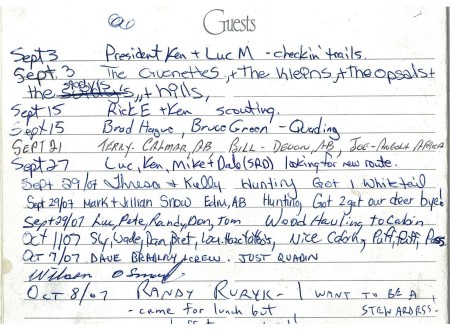 Guests
Sept 3 President Ken + Luc M - checkin' trails.
Sept. 3 The Chenettes, + The Kleins, + The opsals +
the hills,
Sept 15 Rick E + Ken scouting.
Sept 15 Brad Hague, Bruce Green - Quading
SEPT 21 TERRY - CALMAR, AB BILL - DEVON, AB, JOE -
Sept 27 Luc, Ken, Mike + Dale (SRD) looking for new route.
Sept 29/07 Theresa + Kelly Hunting Got 1 Whitetail
Sept 29/07 Mark + Jillian Snow Edm, AB Hunting Got 2 get our deer bye!
Sept 29/07 Luc, Pete, Randy, Don, Tom Wood Hauling to Cabin
Oct 11/07 Sly, Wade, Dan, Bret, Nice Cabin, Puff, Puff, Pass
Oct 7/07 DAVE BRADLEY + CREW. JUST QUADIN
Wilson
Oct 8/07 RANDY RURYK - I WANT TO BE A
- came for lunch but STEWARDESS -